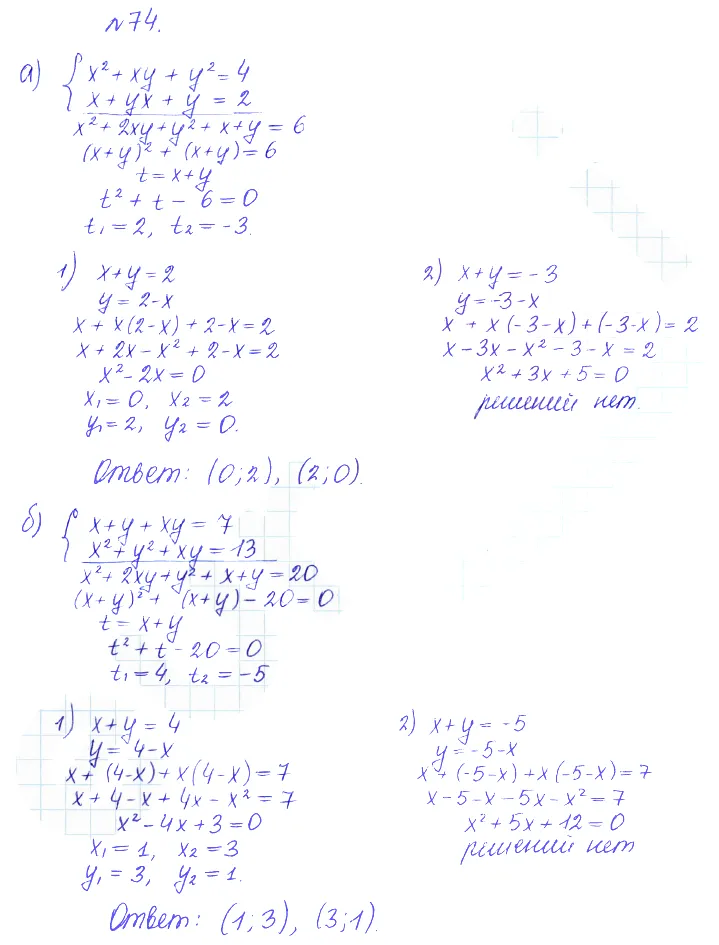 №74.
а) { x² + xy + y² = 4
x + yx + y = 2
x² + 2xy + y² + x + y = 6
(x+y)² + (x+y) = 6
t = x+y
t² + t - 6 = 0
t₁ = 2, t₂ = -3.
1) x+y = 2
y = 2-x
x + x(2-x) + 2-x = 2
x + 2x - x² + 2-x = 2
x² - 2x = 0
x₁ = 0, x₂ = 2
y₁ = 2, y₂ = 0.
2) x+y = -3
y = -3-x
x + x(-3-x) + (-3-x) = 2
x - 3x - x² - 3 - x = 2
x² + 3x + 5 = 0
решений нет.
Ответ: (0;2), (2;0).
б) { x + y + xy = 7
x² + y² + xy = 13
x² + 2xy + y² + x + y = 20
(x+y)² + (x+y) - 20 = 0
t = x+y
t² + t - 20 = 0
t₁ = 4, t₂ = -5
1) x+y = 4
y = 4-x
x + (4-x) + x(4-x) = 7
x + 4-x + 4x - x² = 7
x² - 4x + 3 = 0
x₁ = 1, x₂ = 3
y₁ = 3, y₂ = 1.
2) x+y = -5
y = -5-x
x + (-5-x) + x(-5-x) = 7
x - 5 - x - 5x - x² = 7
x² + 5x + 12 = 0
решений нет
Ответ: (1;3), (3;1).